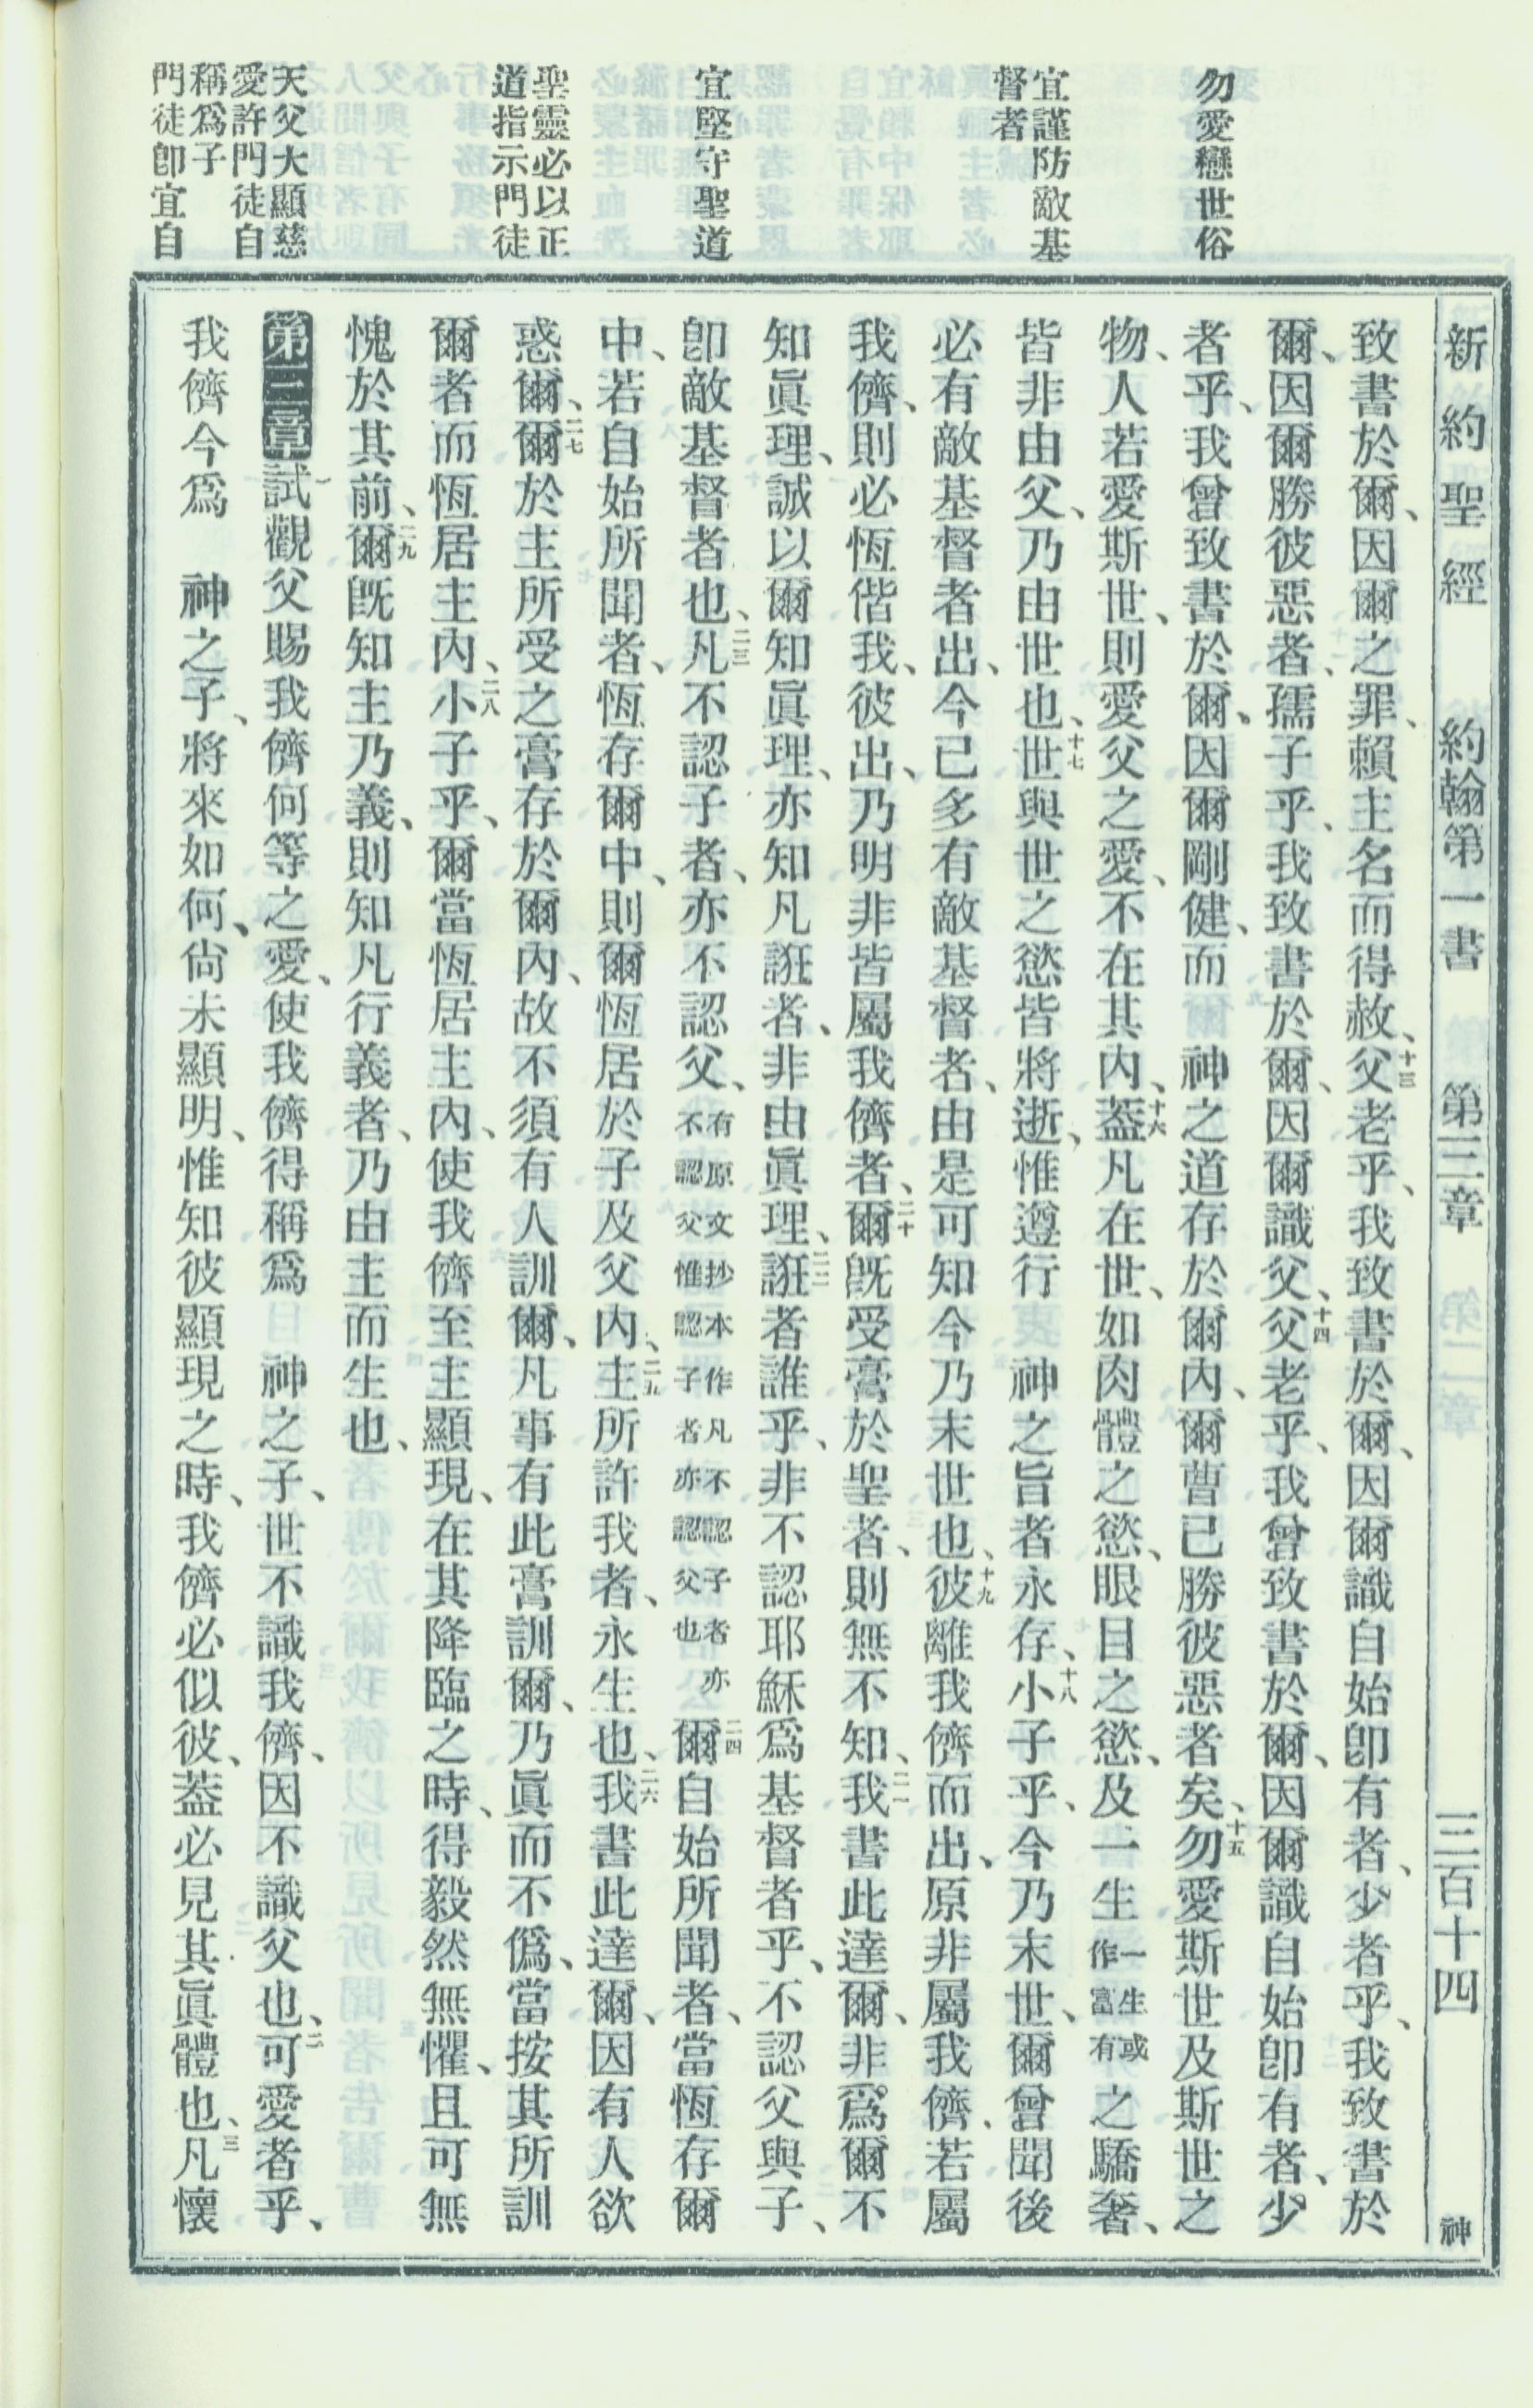 新約聖經 約翰第一書 第三章 三百十四 神
勿愛戀世俗
宜謹防敵基
督者
宜堅守聖道
聖靈必以正
道指示門徒
天父大顯慈
愛許門徒自
稱爲子
門徒卽宜自
致書於爾、因爾之罪、賴主名而得赦、十三父老乎、我致書於爾、因爾識自始卽有者、少者乎、我致書於
爾、因爾勝彼惡者、孺子乎、我致書於爾、因爾識父、十四父老乎、我曾致書於爾、因爾識自始卽有者、少
者乎、我曾致書於爾、因爾剛健、而 神之道存於爾內、爾曹已勝彼惡者矣、十五勿愛斯世及斯世之
物、人若愛斯世、則愛父之愛、不在其內、十六蓋凡在世、如肉體之慾、眼目之慾、及一生一生或作富有之驕奢、
皆非由父、乃由世也、十七世與世之慾皆將逝、惟遵行 神之旨者永存、十八小子乎、今乃末世、爾曾聞後
必有敵基督者出、今已多有敵基督者、由是可知今乃末世也、十九彼離我儕而出、原非屬我儕、若屬
我儕、則必恆偕我、彼出、乃明非皆屬我儕者、二十爾旣受膏於聖者、則無不知、二一我書此達爾、非爲爾不
知眞理、誠以爾知眞理、亦知凡誑者、非由眞理、二二誑者誰乎、非不認耶穌爲基督者乎、不認父與子、
卽敵基督者也、二三凡不認子者、亦不認父、有原文抄本作凡不認子者亦不認父惟認子者亦認父也二四爾自始所聞者、當恆存爾
中、若自始所聞者、恆存爾中、則爾恆居於子及父內、二五主所許我者、永生也、二六我書此達爾、因有人欲
惑爾、二七爾於主所受之膏存於爾內、故不須有人訓爾、凡事有此膏訓爾、乃眞而不僞、當按其所訓
爾者而恆居主內、二八小子乎、爾當恆居主內、使我儕至主顯現、在其降臨之時、得毅然無懼、且可無
愧於其前、二九爾旣知主乃義、則知凡行義者、乃由主而生也、
第三章一試觀父賜我儕何等之愛、使我儕得稱爲 神之子、世不識我儕、因不識父也、二可愛者乎、
我儕今爲 神之子、將來如何、尙未顯明、惟知彼顯現之時、我儕必似彼、蓋必見其眞體也、三凡懷